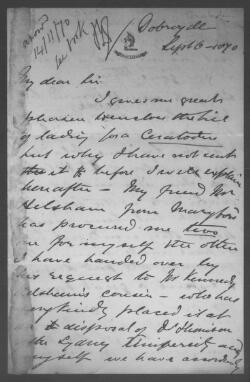 Dobroyde
Sept 6 - 1870
My dear Sir
It gives me great
pleasure to enclose the bill
of lading for a Ceratodus
but why I have not sent
it to before I will explain
hereafter - My friend Mr
Helsham from Maryboro
has procured me two
one for myself the other
I have handed over by
his request to Mr Kennedy
Helsham's cousin - who has
kindly placed it at
disposal of Dr Thomson
the Sydney University and
myself we have accordingly